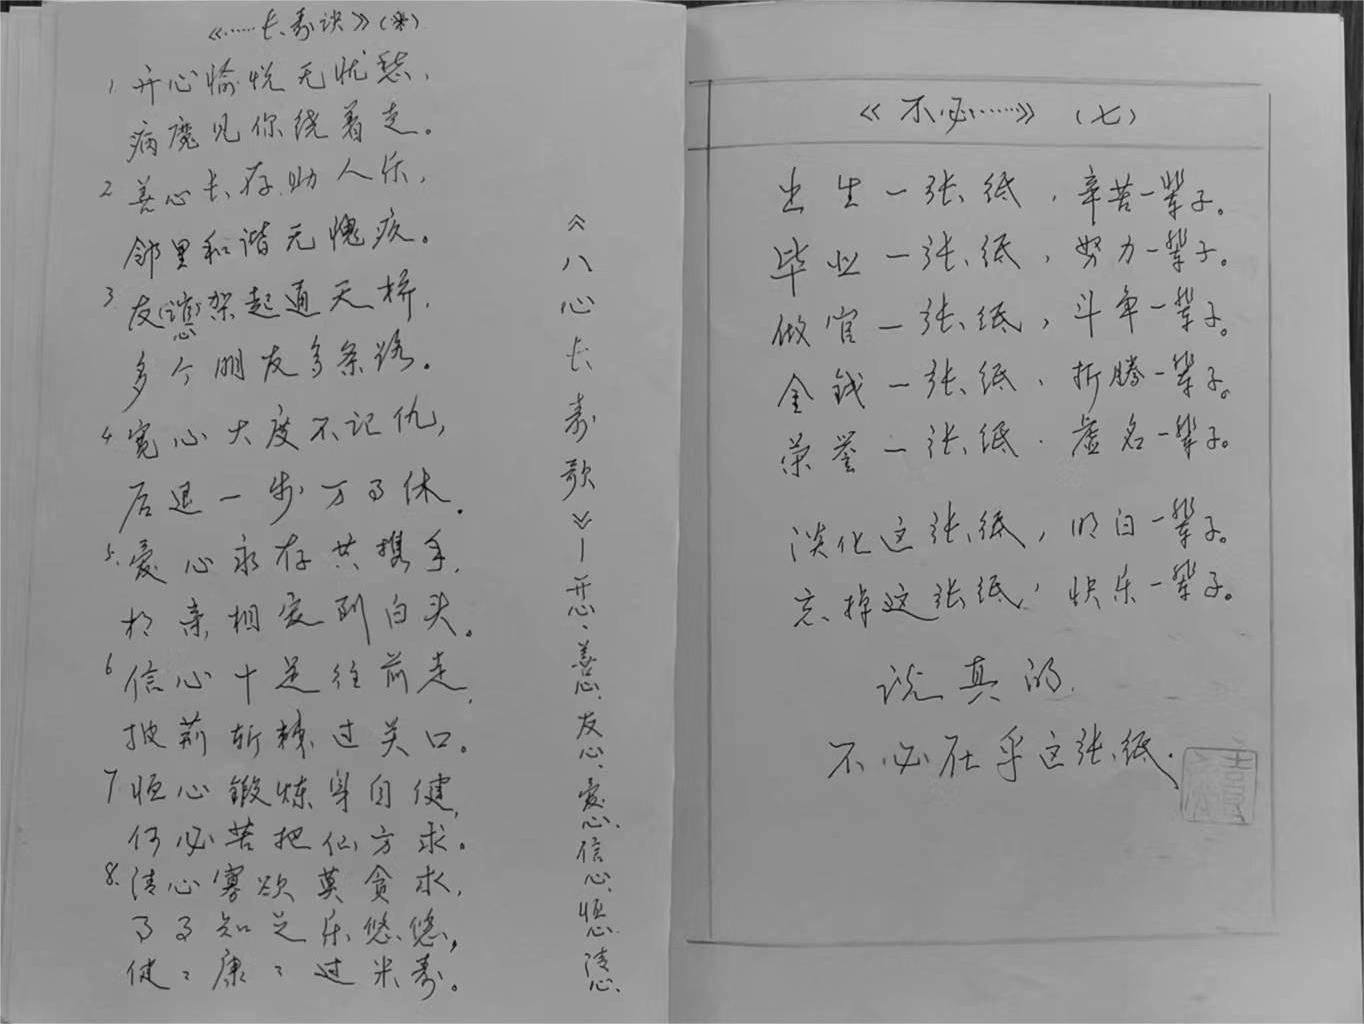 《……长寿诀》(米)
1 开心愉悦无忧愁，
病魔见你绕着走。
2 善心长存助人乐，
邻里和谐无愧疚。
3 友(谊)心架起通天桥，
多个朋友多条路。
4 宽心大度不记仇，
后退一步万事休。
5. 爱心永存共携手，
相亲相爱到白头。
6 信心十足往前走，
披荆斩棘过关口。
7 恒心锻炼身自健，
何必苦把仙方求。
8. 清心寡欲莫贪求，
事事知足乐悠悠，
健々康々过米寿。
《八心长寿歌》—开心、善心、友心、爱心、信心、恒心、清心、
《不必……》(七)
出生一张纸，辛苦一辈子。
毕业一张纸，努力一辈子。
做官一张纸，斗争一辈子。
金钱一张纸，折腾一辈子。
荣誉一张纸．虚名一辈子。
淡化这张纸，明白一辈子。
忘掉这张纸，快乐一辈子。
说真的．
不必在乎这张纸．